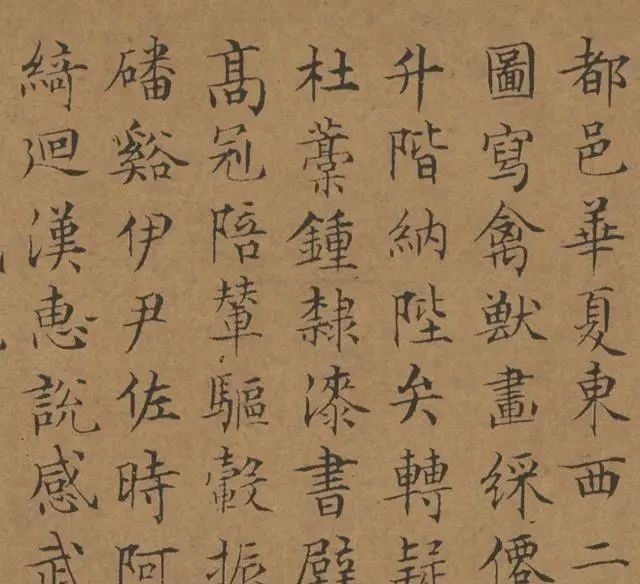 都邑華夏東西二
圖寫禽獸畫綵僊
升階納陛矣轉疑
杜藁鍾隸漆書壁
髙冠陪輦驅轂振
磻谿伊尹佐時阿
綺迴漢惠說感武